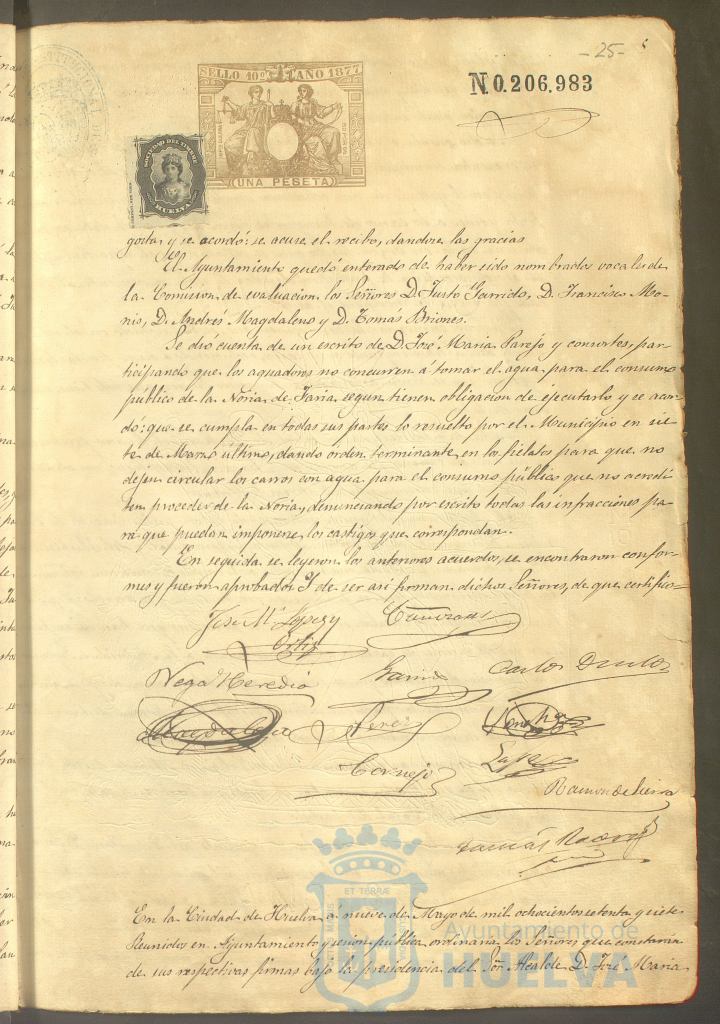 -25-
SELLO 10º AÑO 1877
N0.206.983
SOCIEDAD DEL TIMBRE
HUELVA
(UNA PESETA)
gosta, y se acordó: se acuse el recibo, dandose las gracias
El Ayuntamiento quedó enterado de haber sido nombrados vocales de
la Comision de evaluacion los Señores D. Justo Garrido, D. Francisco Mo-
nis, D. Andrés Magdaleno y D. Tomás Briones.
Se dio cuenta de un escrito de D. José Maria Parejo y consortes, par-
ticipando que los aguadores no concurren á tomar el agua para el consumo
público de la Noria de Faria segun tienen obligacion de ejecutarlo y se acor-
dó: que se cumpla en todas sus partes lo resuelto por el Municipio en sie-
te de Marzo último, dando orden terminante en los fielatos para que no
dejen circular los carros con agua para el consumo público que no acredi-
ten proceder de la Noria, denunciando por escrito todas las infracciones pa-
ra que puedan imponerse los castigos que correspondan.
En seguida se leyeron los anteriores acuerdos, se encontraron confor-
mes y fueron aprobados Y de ser asi firman dichos Señores, de que certifico-
José Mª Lopez y
Ortiz
Vega Heredia
Garrido
Carlos
Perez
Sanchez
Cornejo
Lopez
Ramon de Sierra
Tomás
ET TERRÆ
En la Ciudad de Huelva á nueve de Mayo de mil ochocientos setenta y siete
Reunidos en Ayuntamiento y sesion pública ordinaria los Señores que constarán
de sus respectivas firmas bajo la presidencia del Sor. Alcalde D. José Maria
Ayuntamiento de
HUELVA